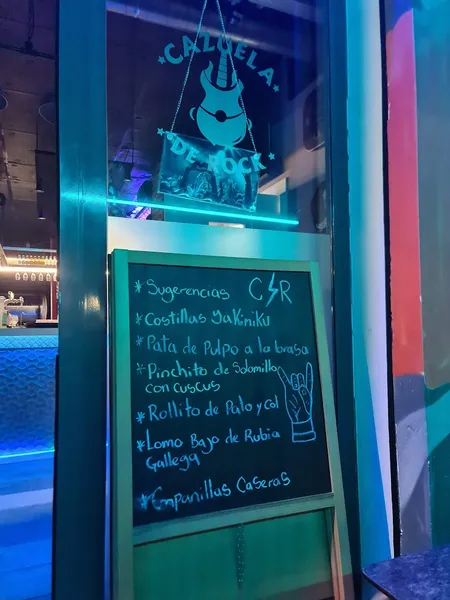 CAZUELA
DE ROCK
*Sugerencias C⚡R
*Costillas yakiniku
*Pata de Pulpo a la brasa
*Pinchito de Solomillo
con cuscus
*Rollito de Pato y col
*Lomo Bajo de Rubia
Gallega
*Empanillas Caseras